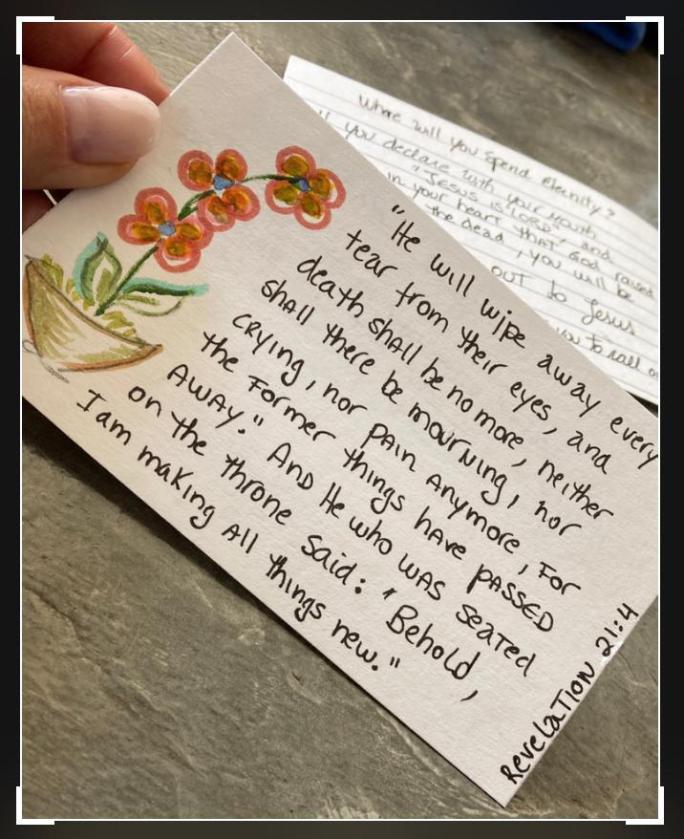 "He will wipe away every
tear from their eyes, and
death shall be no more, neither
shall there be mourning, nor
crying, nor pain anymore, for
the former things have passed
away." And He who was seated
on the throne said: "Behold,
I am making all things new."
Revelation 21:4
Where will you spend eternity?
you declare with your mouth
"Jesus is LORD" and
in your heart THAT God raised
the dead, you will be
OUT to Jesus
to call